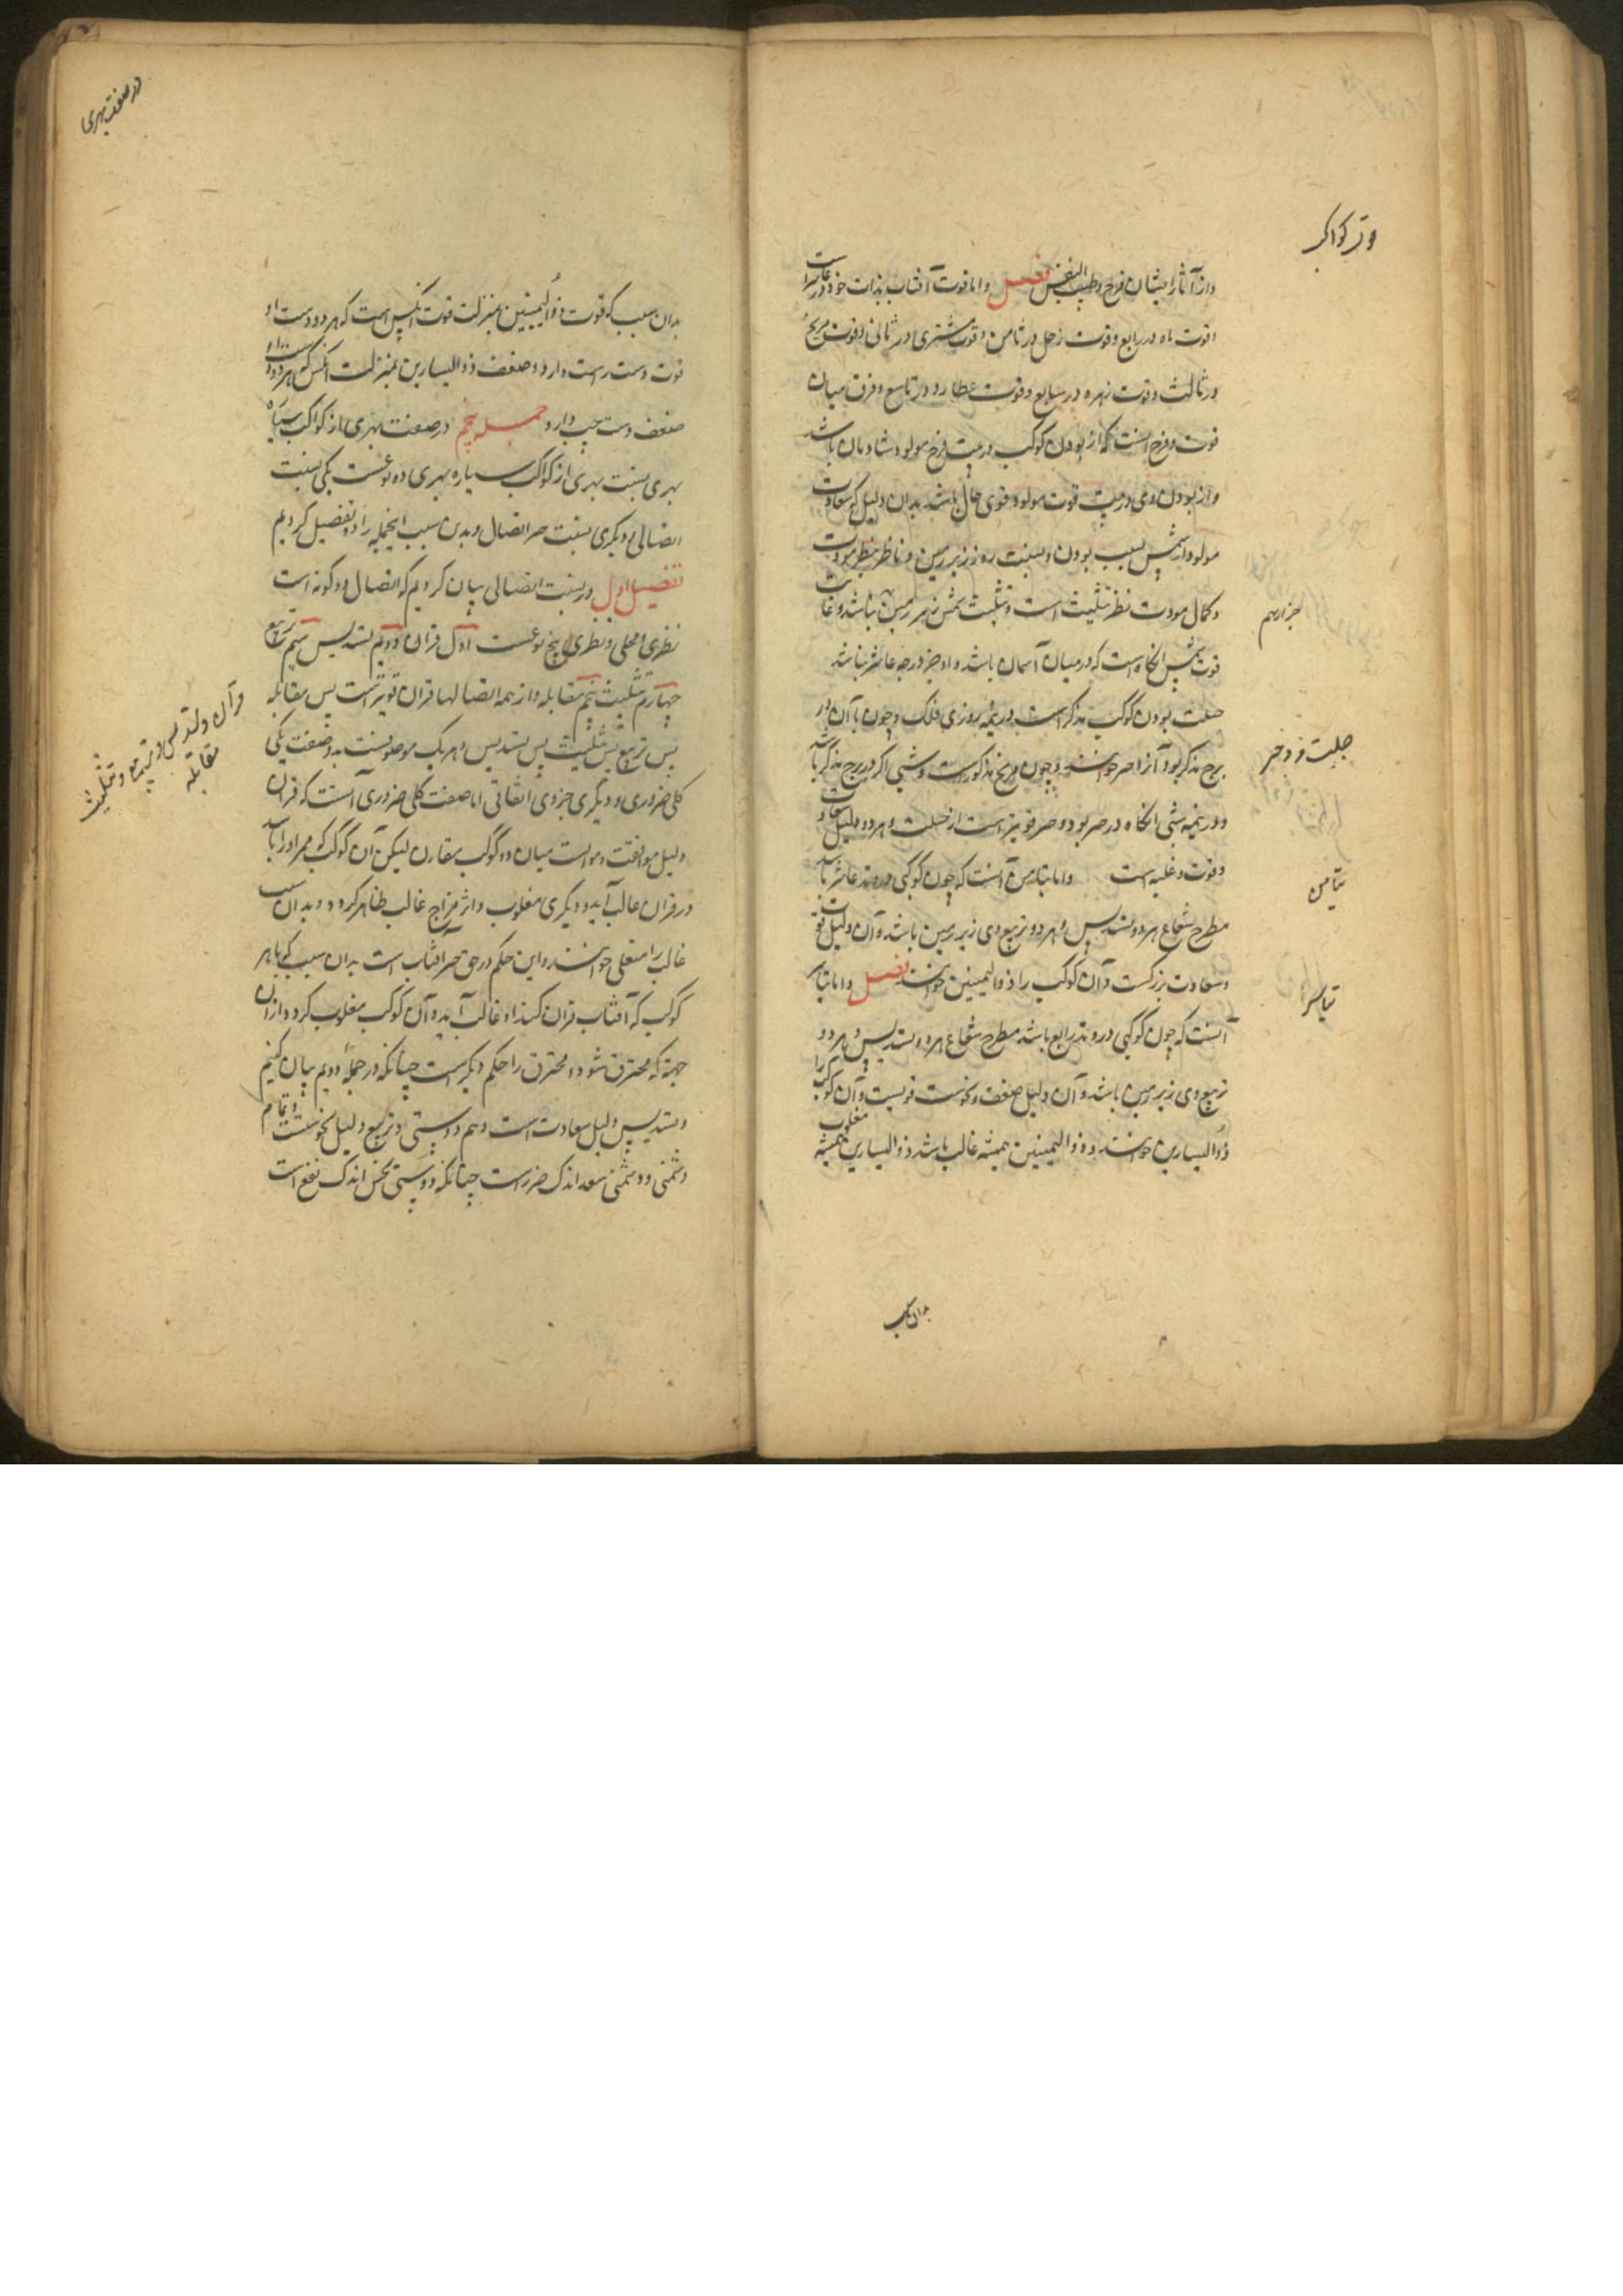 قوت کواکب
واز آثار ایشان فرح وطیب النفس فصل واما قوت آفتاب بذات خود در عاشر است
وقوت ماه در رابع وقوت زحل در ثامن وقوت مشتری در ثانی وقوت مریخ
در ثالث وقوت زهره در سابع وقوت عطارد در تاسع وفرق میان
قوت وفرح آنست که از بودن کوکب در بیت فرح مولود شادمان باشد
واز بودن وی در بیت قوت مولود قوی حال باشد بدان دلیل که سعادت
مولود از شمس بسبب بودن وبسبت روز زیر زمین وناظر بنظر مودت
وکمال مودت نظر تثلیث است وتثلیث شمس زیر زمین نباشد وغایت
قوت شمس آنگاه است که در میان آسمان باشد واو جز در درجه عاشر نباشد
حلبت بودن کوکب مذکر است در نیمه روزی فلک وچون با آن در
برج مذکر بود آنرا حیز خوانند وچون مریخ مذکورست وشبی اگر در برج مذکر باشد
ودر نیمه شبی آنگاه در حیز بود وحیز قویتر است از حلبت وهر دو دلیل سعادت
وقوت وغلبه است واما تیامن آنست که چون کوکبی در وتد عاشر باشد
مطرح شعاع هر دو تسدیس وهر دو تربیع وی زبر زمین باشد وآن دلیل قوت
وسعادت بزرگست وآن کوکب را ذوالیمینین خوانند فصل واما تیاسر
آنست که چون کوکبی در وتد رابع باشد مطرح شعاع هر دو تسدیس وهر دو
تربیع وی زیر زمین باشد وآن دلیل ضعف ونحوست قویست وآن کوکب را
ذوالیسارین خوانند وذوالیمینین همیشه غالب باشد ذوالیسارین همیشه مغلوب
حلبت و حیز
تیامن
تیاسر
بدان سبب
در صفت بهری
بدان سبب که قوت ذوالیمینین بمنزلت قوت آنکس است که هر دو دست او
قوت دست راست دارد وضعف ذوالیسارین بمنزلت آنکس که هر دو دست او
ضعف دست چپ دارد جمله پنجم در صفت بهری از کواکب سیاره
بهری بنسبت بهری از کواکب سیاره بهری دو نوعست یکی بنسبت
اتصالی ودیگری بنسبت جز اتصال وبدین سبب اینجمله را دو تفصیل کردیم
تفصیل اول در نسبت اتصالی بیان کردیم که اتصال دو گونه است
نظری ومحلی ونظری پنج نوعست اول قران دویم تسدیس سیم تربیع
چهارم تثلیث پنجم مقابله واز همه اتصالها قران قویتر است پس مقابله
پس تربیع پس تثلیث پس تسدیس وهر یک موصوفست به دو صفت یکی
کلی ضروری و دیگری جزوی اتفاقی اما صفت کلی ضروری آنست که قران
دلیل موافقت وموانست میان دو کوکب مقارن لیکن آن کوکب که ممر او را باشد
در قران غالب آید ودیگری مغلوب واثر مزاج غالب ظاهر گردد وبدان سبب
غالب را مستعلی خوانند واین حکم در حق جز آفتاب است بدان سبب که با هر
کوکب که آفتاب قران کند او غالب آید وآن کوکب مغلوب گردد وازان
جهة که محترق شود ومحترق را حکم دیگر است چنانکه در جملهٔ دویم بیان کنیم
وتسدیس دلیل سعادت است ونیم دوستی وتربیع دلیل نحوست وتمام
دشمنی ودشمنی سعد اندک ضررست چنانکه دوستی نحس اندک نفع است
قران و تسدیس و تربیع و تثلیث
مقابله